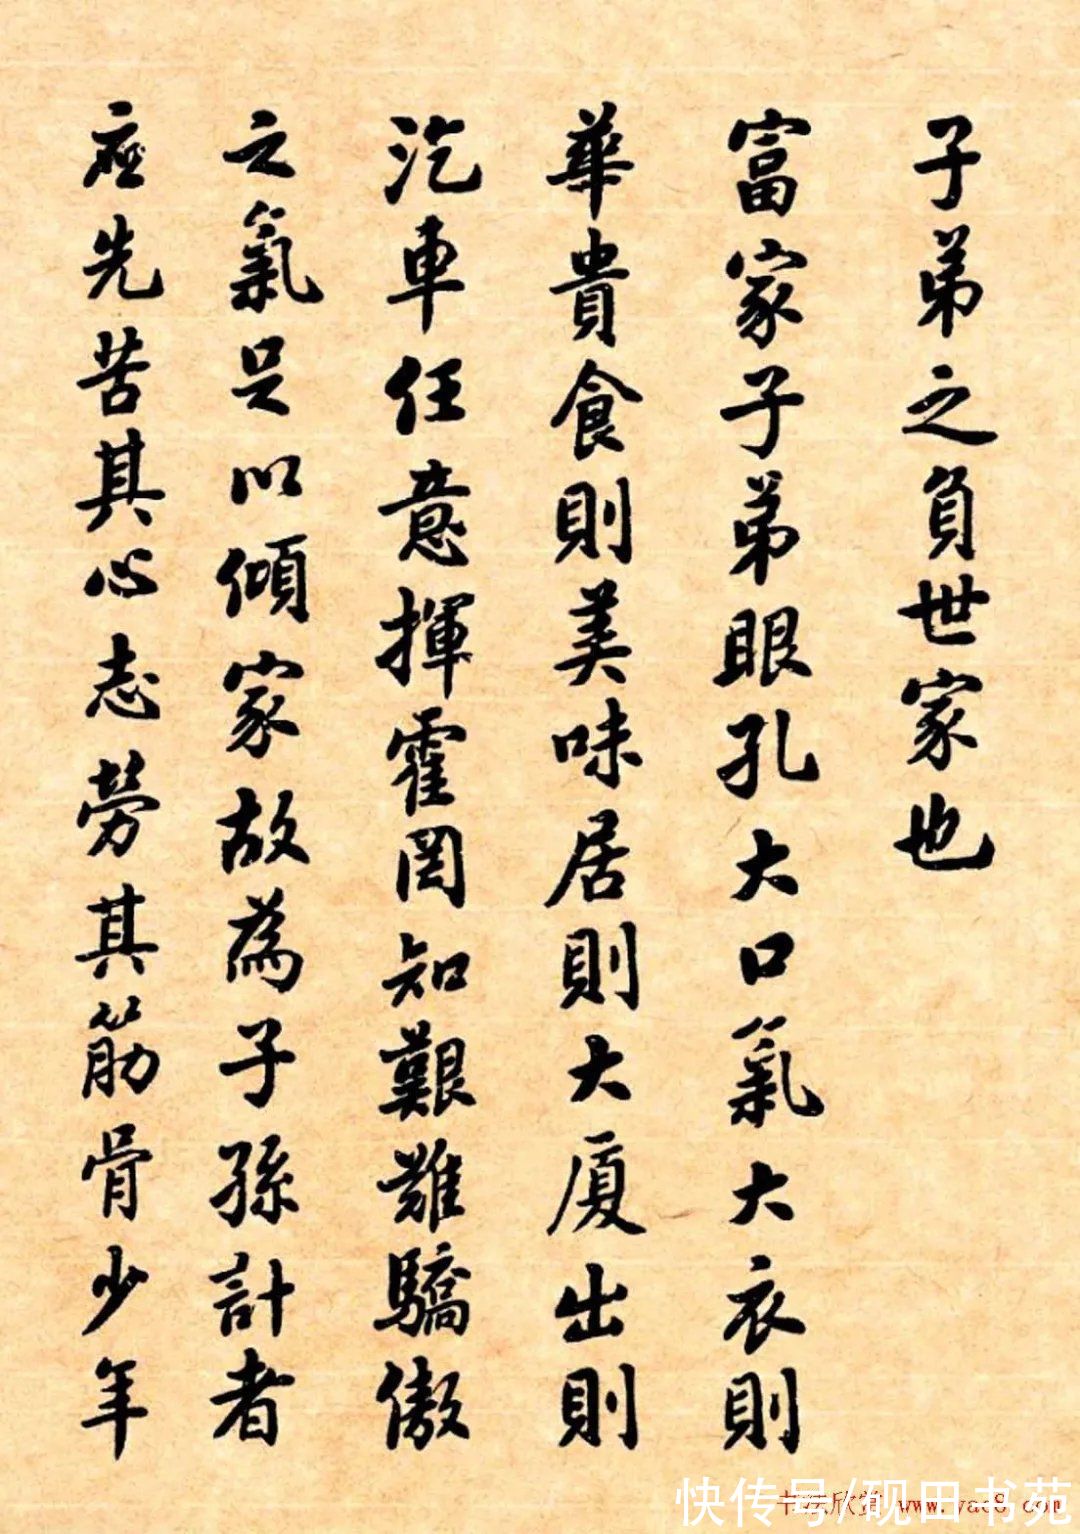 子弟之負世家也
富家子弟眼孔大口氣大衣則
華貴食則美味居則大廈出則
汽車任意揮霍罔知艱難驕傲
之氣足以傾家故為子孫計者
應先苦其心志勞其筋骨少年
书法欣赏 www.yac8.com
快传号/砚田书苑